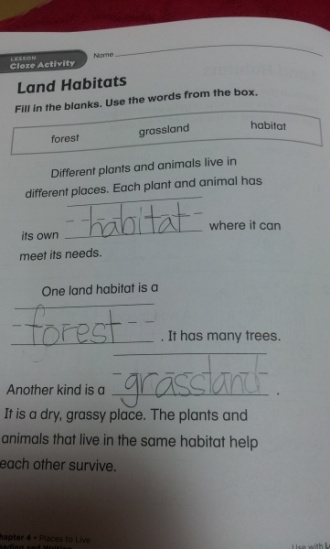 LESSON
Cloze Activity
Name
Land Habitats
Fill in the blanks. Use the words from the box.
forest grassland habitat
Different plants and animals live in
different places. Each plant and animal has
its own habitat where it can
meet its needs.
One land habitat is a
forest . It has many trees.
Another kind is a grassland .
It is a dry, grassy place. The plants and
animals that live in the same habitat help
each other survive.
hapter 4 • Places to Live
Use with L